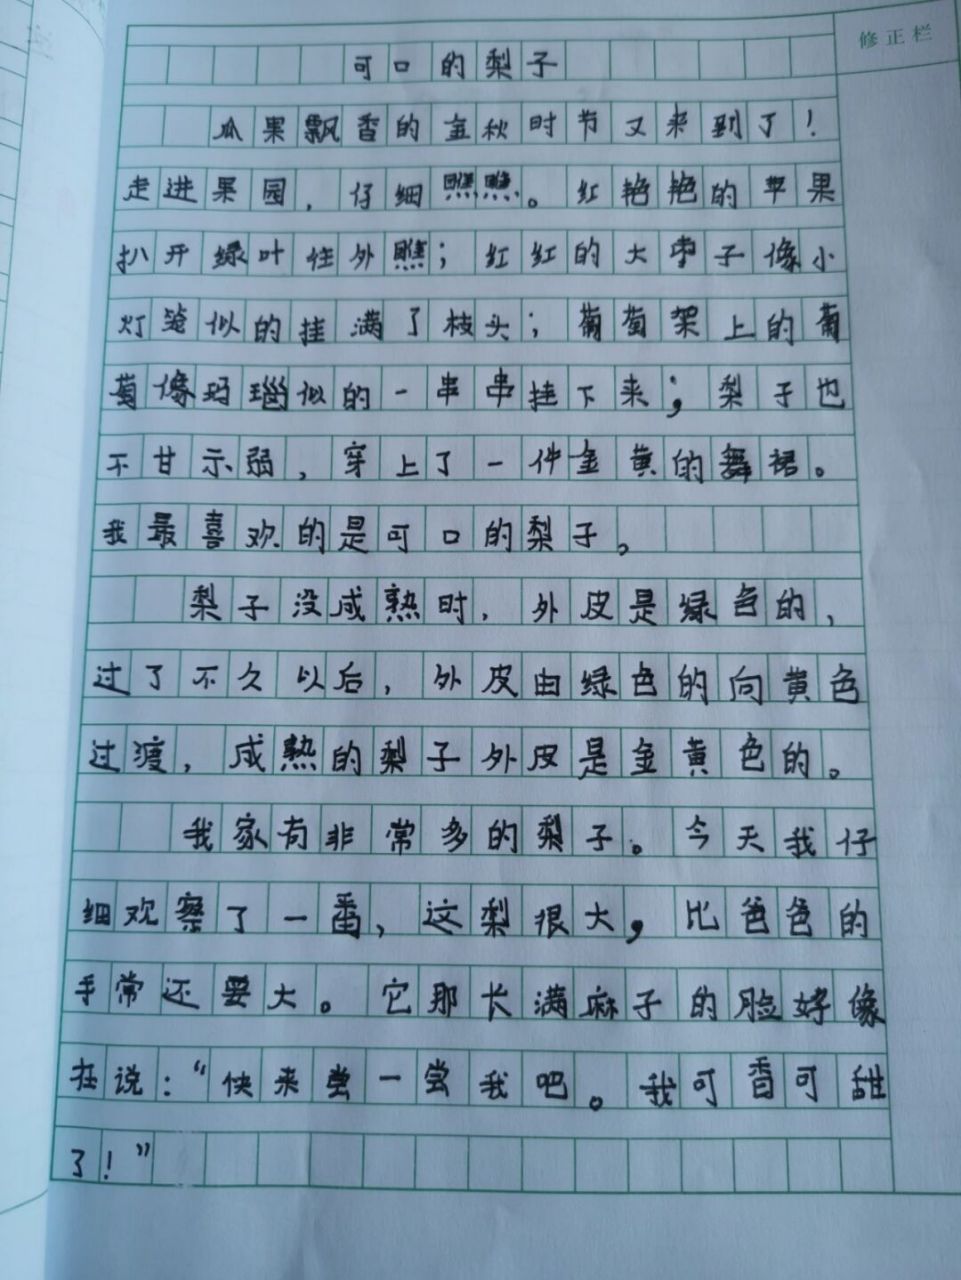 修正栏
可口的梨子
瓜果飘香的金秋时节又来到了！
走进果园，仔细瞧瞧。红艳艳的苹果
扒开绿叶往外瞧；红红的大枣子像小
灯笼似的挂满了枝头；葡萄架上的葡
萄像玛瑙似的一串串挂下来；梨子也
不甘示弱，穿上了一件金黄的舞裙。
我最喜欢的是可口的梨子。
梨子没成熟时，外皮是绿色的，
过了不久以后，外皮由绿色的向黄色
过渡，成熟的梨子外皮是金黄色的。
我家有非常多的梨子。今天我仔
细观察了一番，这梨很大，比爸爸的
手常还要大。它那长满麻子的脸好像
在说：“快来尝一尝我吧。我可香可甜
了！”